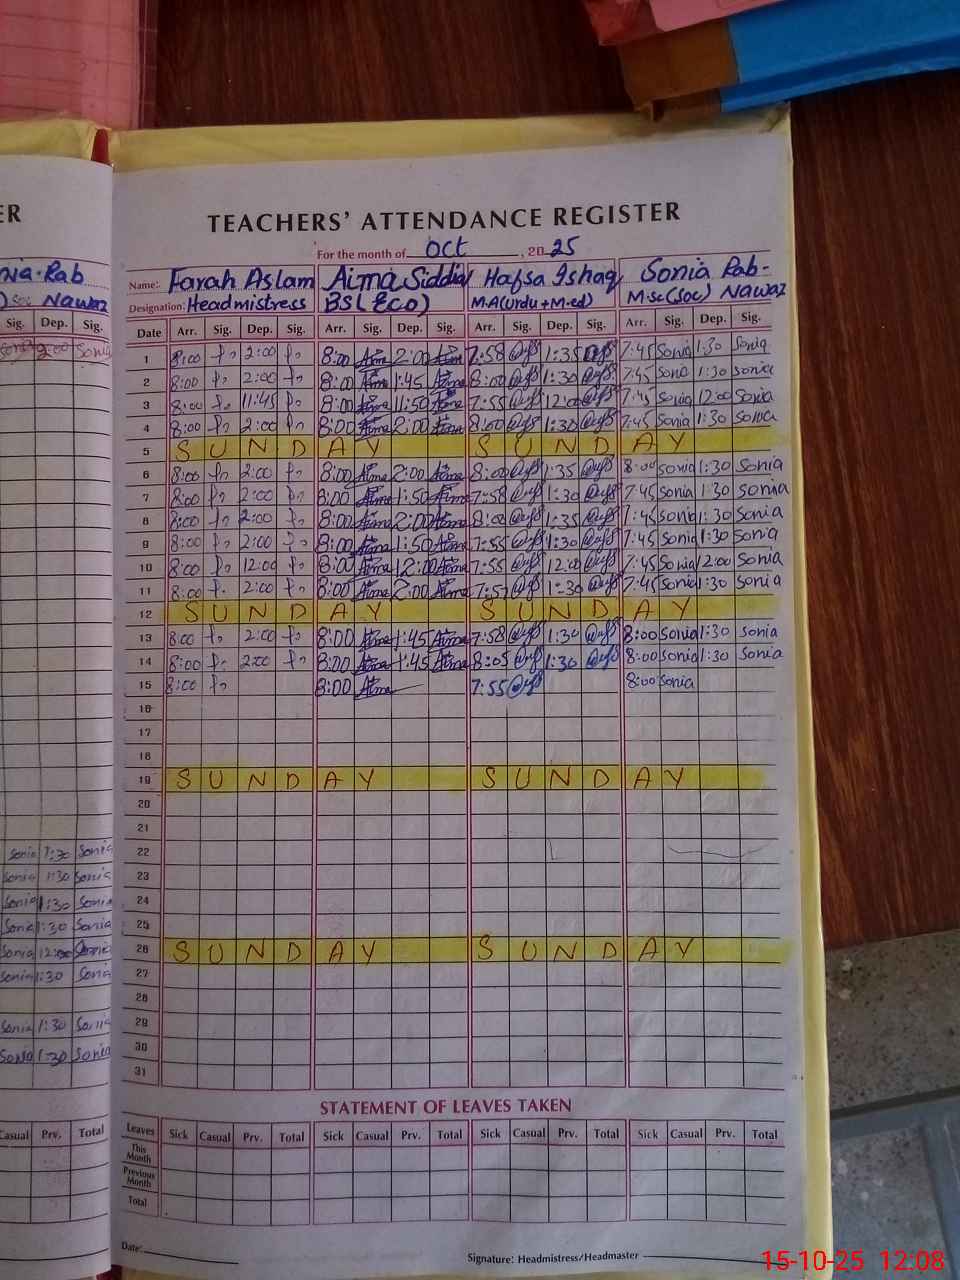 ER
TEACHERS' ATTENDANCE REGISTER
For the month of Oct, 2025
nia Rab
Soc Nawaz
Sig. Dep. Sig.
2:00 Sonia
Name: Farah Aslam Aima Siddiq Hafsa Ishaq Sonia Rab-
Designation: Headmistress BS(Eco) M.A(Urdu+M.ed) M.Sc(Soc) Nawaz
Date Arr. Sig. Dep. Sig. Arr. Sig. Dep. Sig. Arr. Sig. Dep. Sig. Arr. Sig. Dep. Sig.
1 8:00 2:00 8:00 Aima 2:00 Aima 7:58 1:35 7:45 Sonia 1:30 Sonia
2 8:00 2:00 8:00 Aima 1:45 Aima 8:00 1:30 7:45 Sonia 1:30 Sonia
3 8:00 11:45 8:00 Aima 11:50 Aima 7:55 12:00 7:45 Sonia 12:00 Sonia
4 8:00 2:00 8:00 Aima 2:00 Aima 8:00 1:30 7:45 Sonia 1:30 Sonia
5 SUNDAY SUNDAY
6 8:00 2:00 8:00 Aima 2:00 Aima 8:00 1:35 8:00 Sonia 1:30 Sonia
7 8:00 2:00 8:00 Aima 1:50 Aima 7:58 1:30 7:45 Sonia 1:30 Sonia
8 8:00 2:00 8:00 Aima 2:00 Aima 8:00 1:35 7:45 Sonia 1:30 Sonia
9 8:00 2:00 8:00 Aima 1:50 Aima 7:55 1:30 7:45 Sonia 1:30 Sonia
10 8:00 12:00 8:00 Aima 12:00 Aima 7:55 12:00 7:45 Sonia 12:00 Sonia
11 8:00 2:00 8:00 Aima 2:00 Aima 7:57 1:30 7:45 Sonia 1:30 Sonia
12 SUNDAY SUNDAY
13 8:00 2:00 8:00 Aima 1:45 Aima 7:58 1:30 8:00 Sonia 1:30 Sonia
14 8:00 2:00 8:00 Aima 1:45 Aima 8:05 1:30 8:00 Sonia 1:30 Sonia
15 8:00 8:00 Aima 7:55 8:00 Sonia
16
17
18
19 SUNDAY SUNDAY
20
21
22
Sonia 1:30 Sonia
23
Sonia 1:30 Sonia
24
Sonia 1:30 Sonia
25
Sonia 1:30 Sonia
26 SUNDAY SUNDAY
Sonia 12:00 Sonia
27
Sonia 1:30 Sonia
28
29
Sonia 1:30 Sonia
30
Sonia 1:30 Sonia
31
STATEMENT OF LEAVES TAKEN
Casual Prv. Total
Leaves Sick Casual Prv. Total Sick Casual Prv. Total Sick Casual Prv. Total Sick Casual Prv. Total
This Month
Previous Month
Total
Date:
Signature: Headmistress/Headmaster
15-10-25 12:08